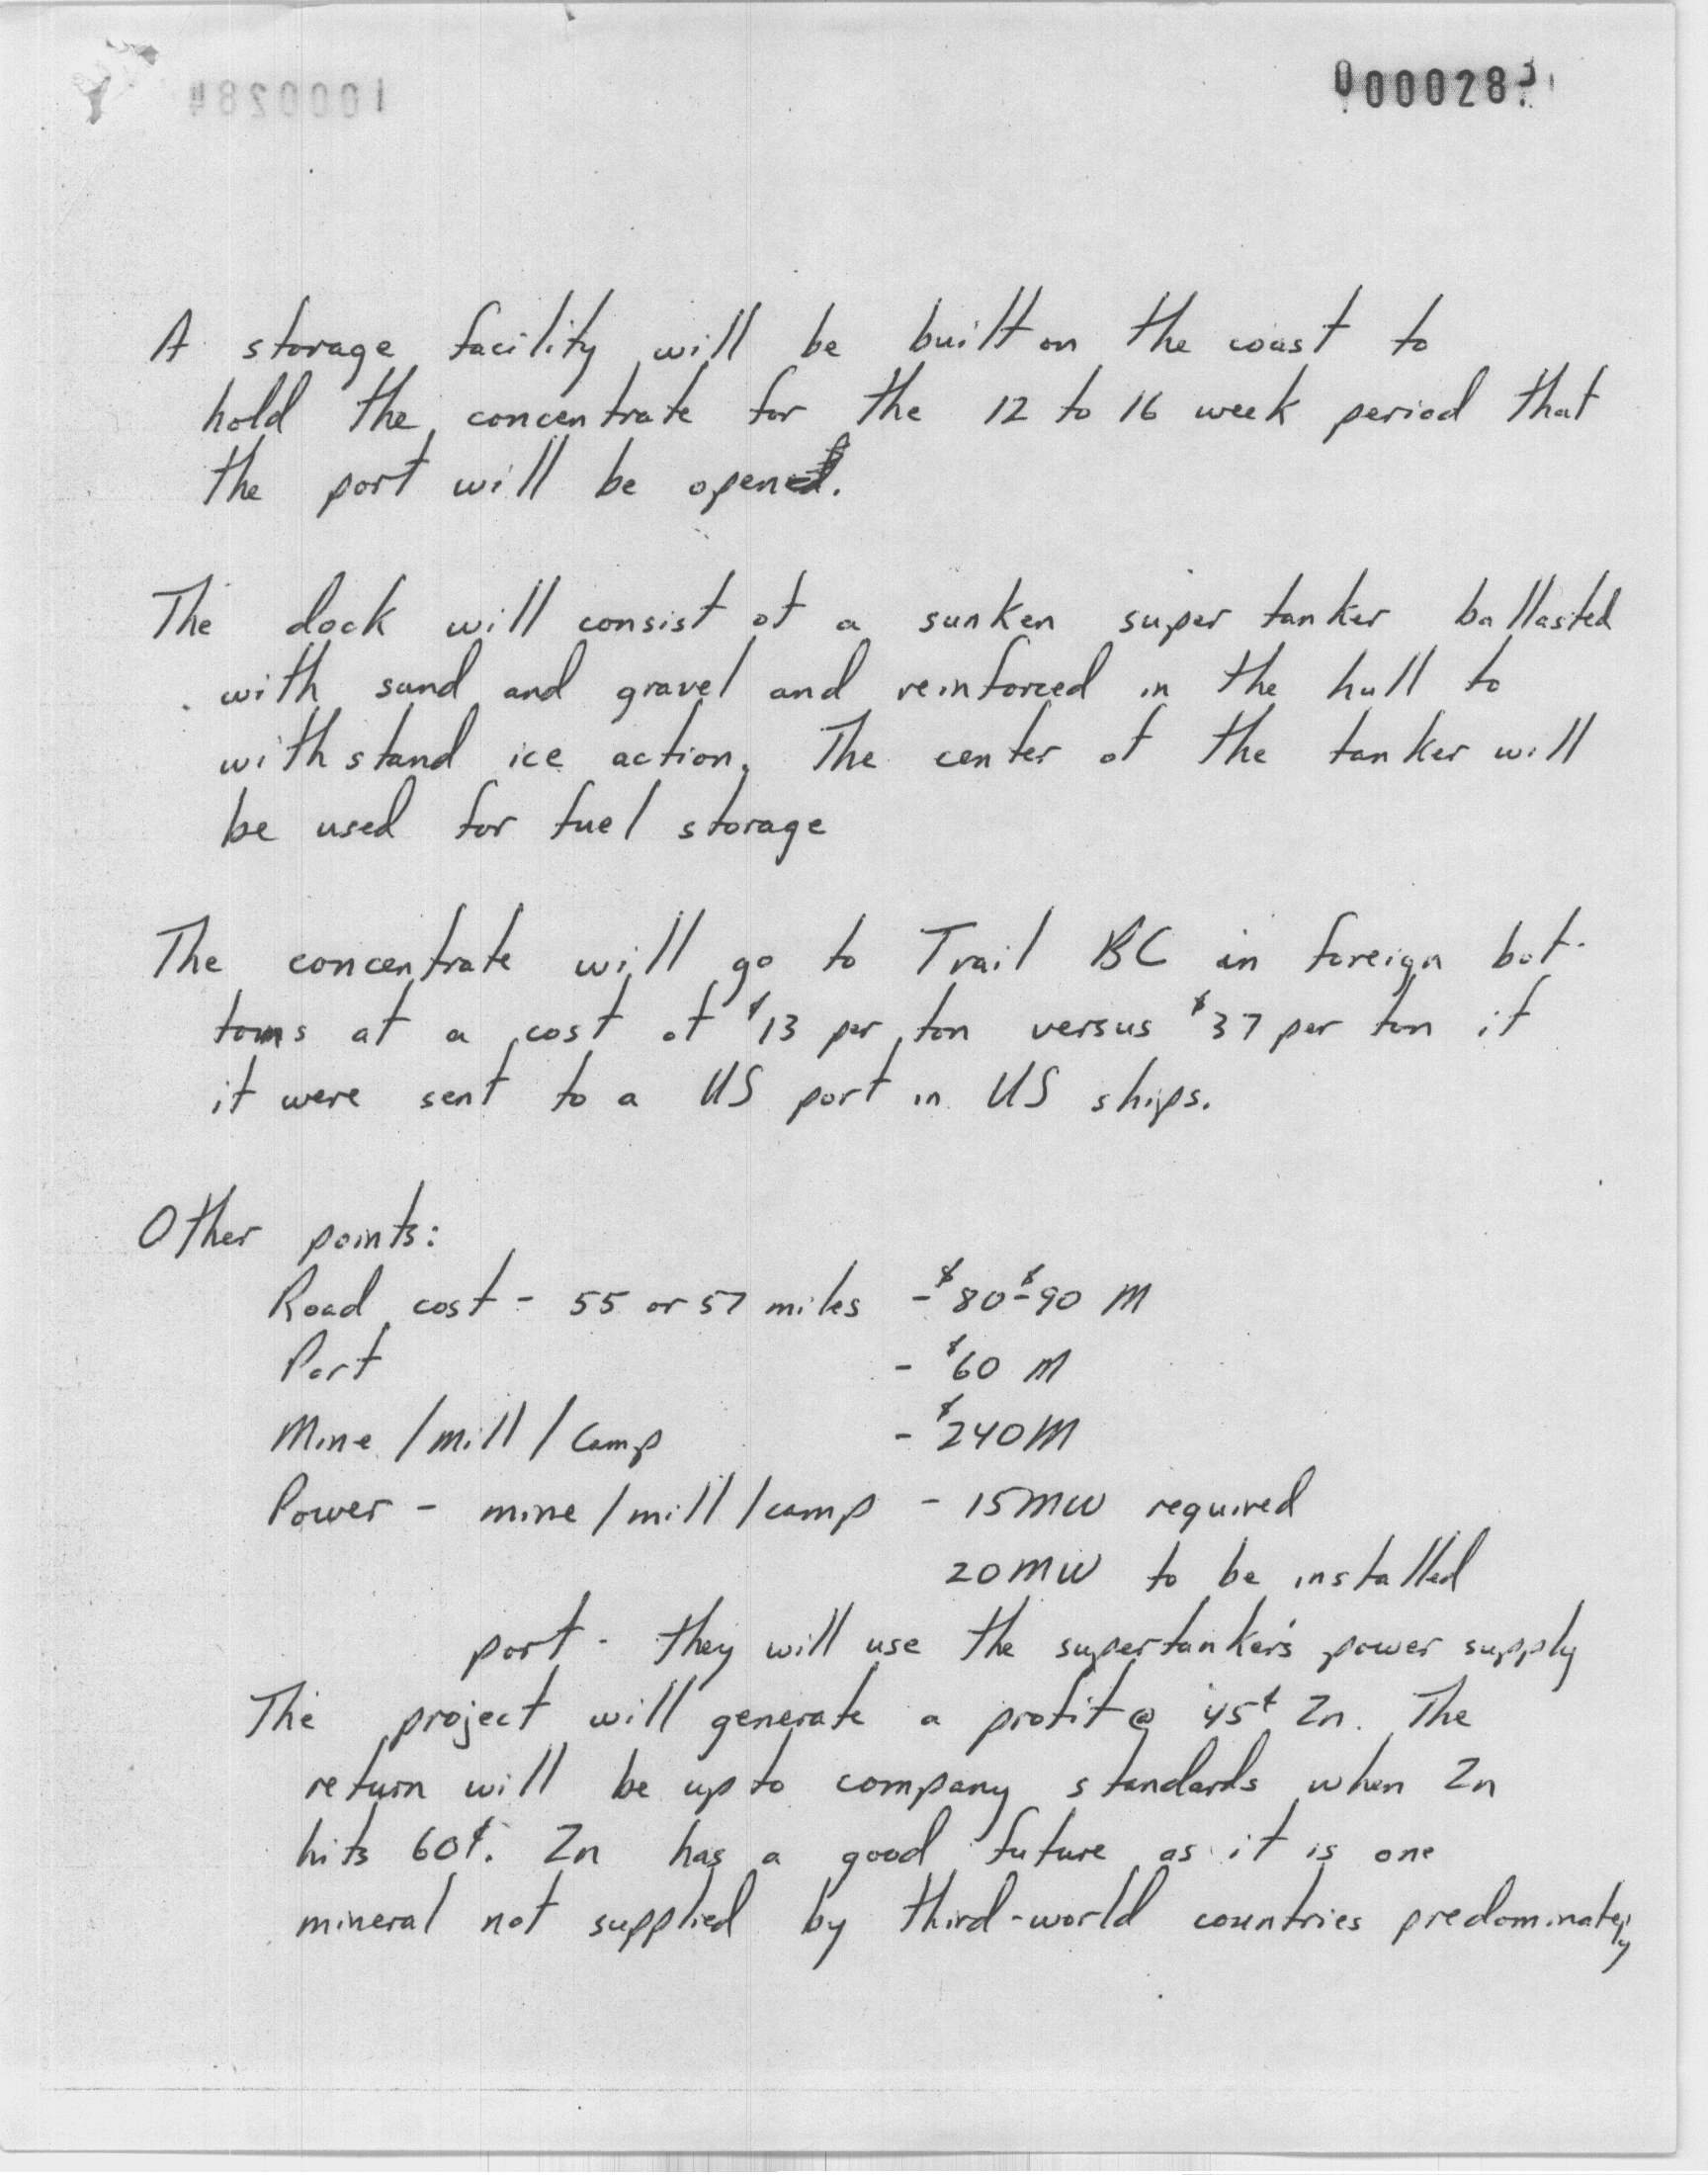 A storage facility will be built on the coast to
hold the concentrate for the 12 to 16 week period that
the port will be open.
The dock will consist of a sunken super tanker ballasted
with sand and gravel and reinforced in the hull to
withstand ice action. The center of the tanker will
be used for fuel storage
The concentrate will go to Trail BC in foreign bot-
toms at a cost of $13 per ton versus $37 per ton if
it were sent to a US port in US ships.
Other points:
Road cost - 55 or 57 miles - $80-$90 M
Port - $60 M
Mine / mill / camp - $240 M
Power - mine / mill / camp - 15 MW required
20 MW to be installed
port - they will use the supertanker's power supply
The project will generate a profit @ 45¢ Zn. The
return will be up to company standards when Zn
hits 60¢. Zn has a good future as it is one
mineral not supplied by third-world countries predominately